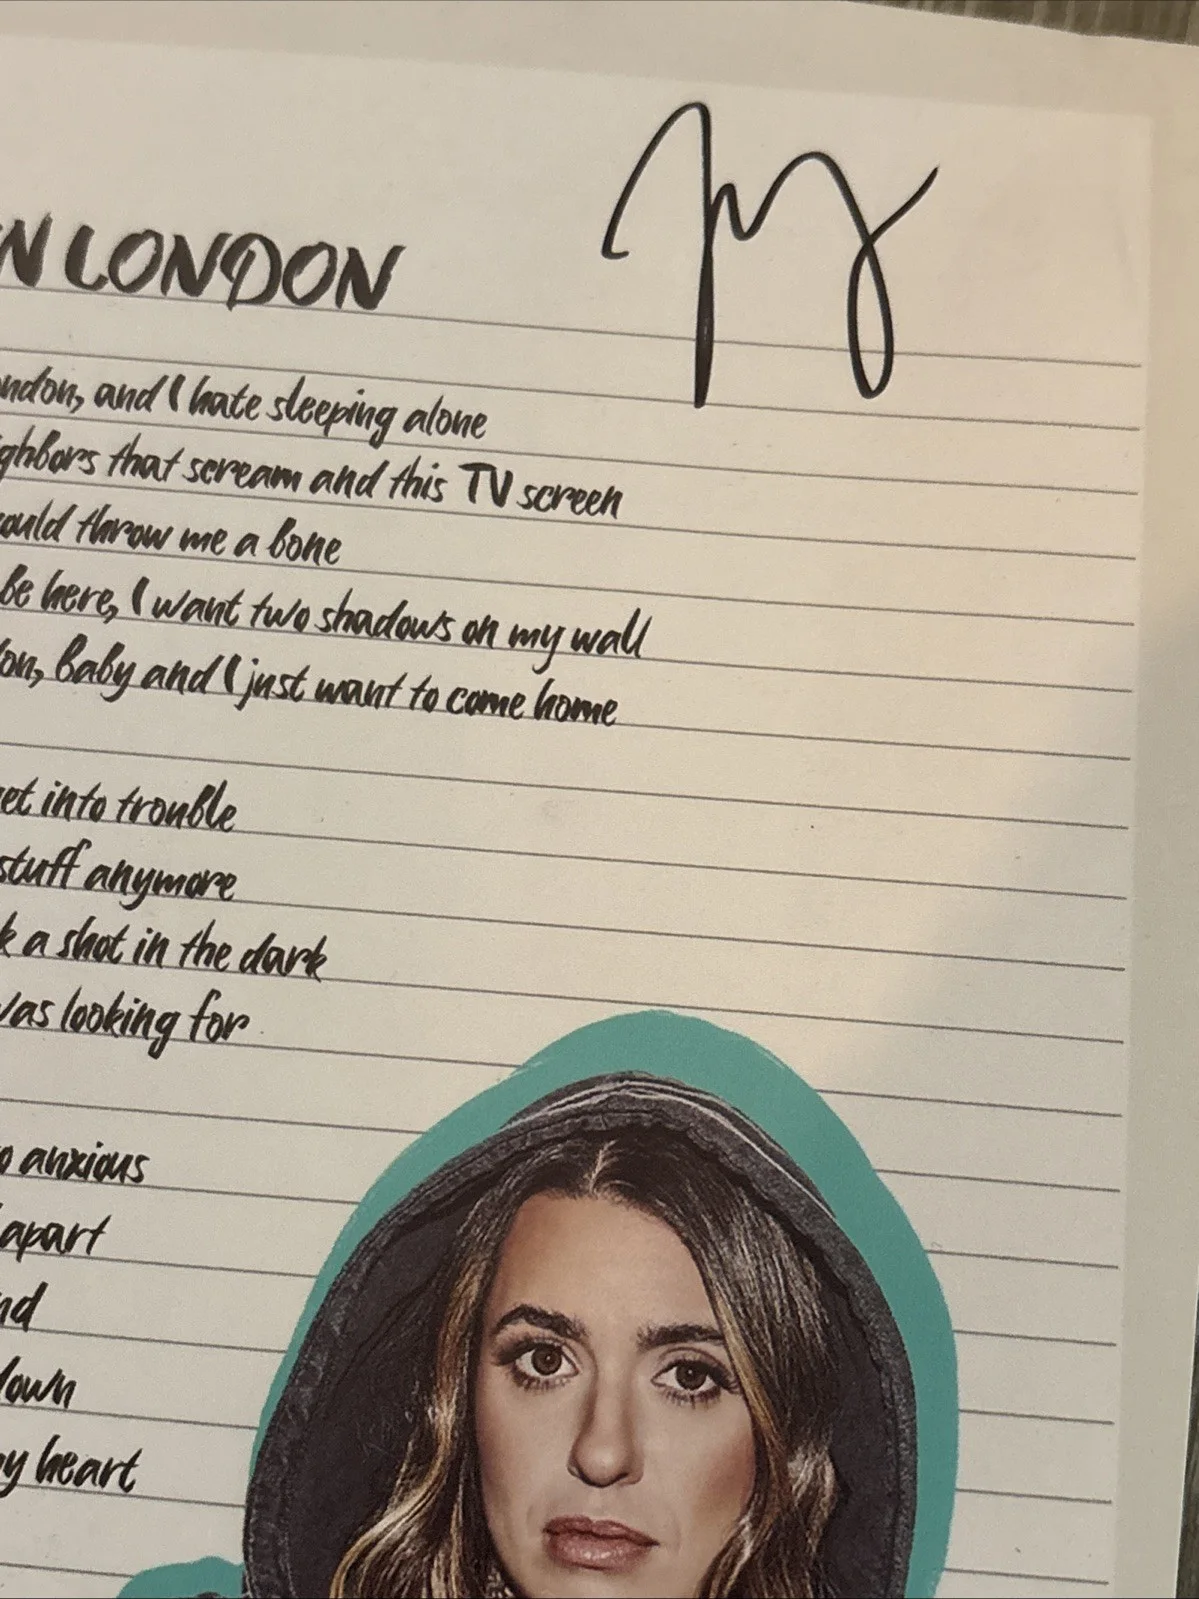 N LONDON
ndon, and I hate sleeping alone
ghbors that scream and this TV screen
ould throw me a bone
be here, I want two shadows on my wall
on, baby and I just want to come home
et into trouble
stuff anymore
k a shot in the dark
was looking for
o anxious
apart
nd
down
y heart